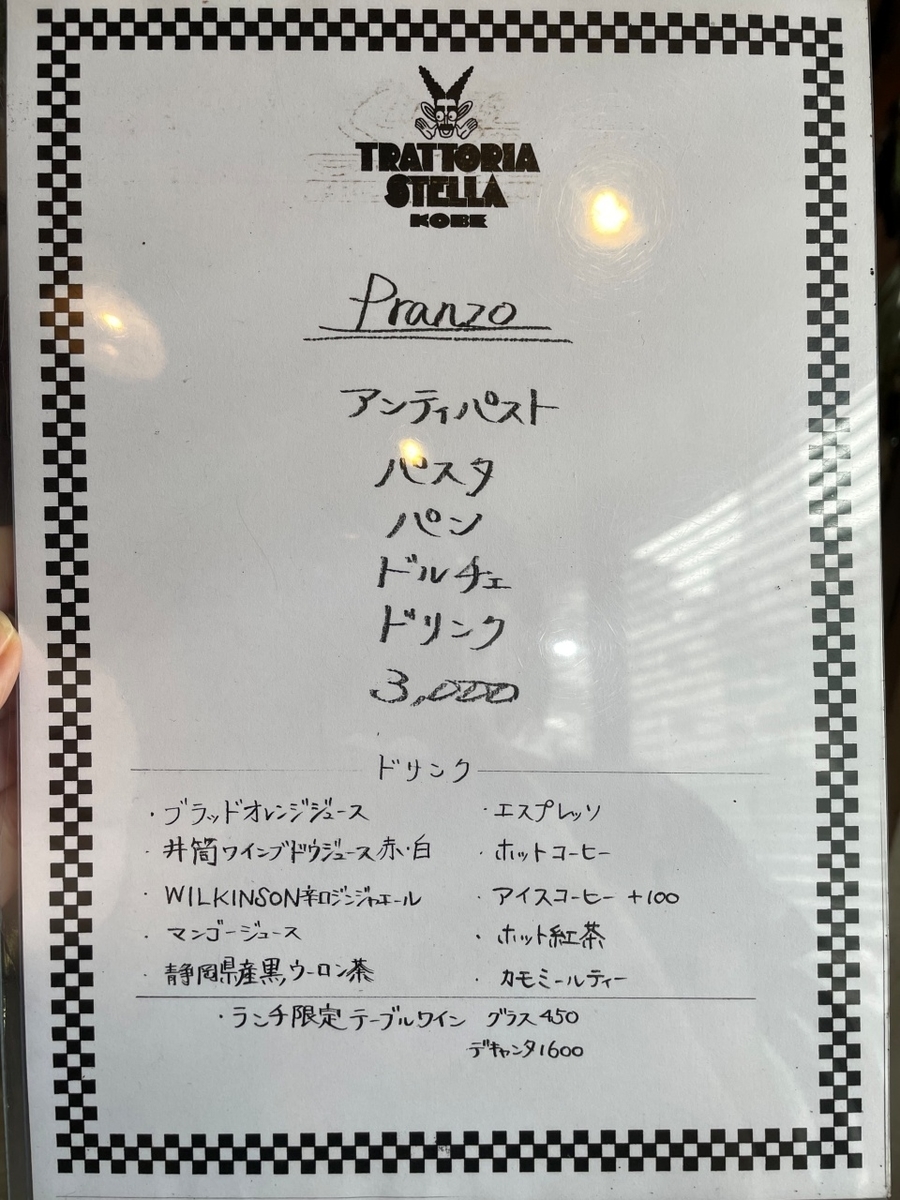 TRATTORIA
STELLA
KOBE
Pranzo
アンティパスト
パスタ
パン
ドルチェ
ドリンク
3,000
ドリンク
・ブラッドオレンジジュース
・井筒ワインブドウジュース赤・白
・WILKINSON辛口ジンジャエール
・マンゴージュース
・静岡県産黒ウーロン茶
・エスプレッソ
・ホットコーヒー
・アイスコーヒー +100
・ホット紅茶
・カモミールティー
・ランチ限定テーブルワイン グラス450
デキャンタ1600